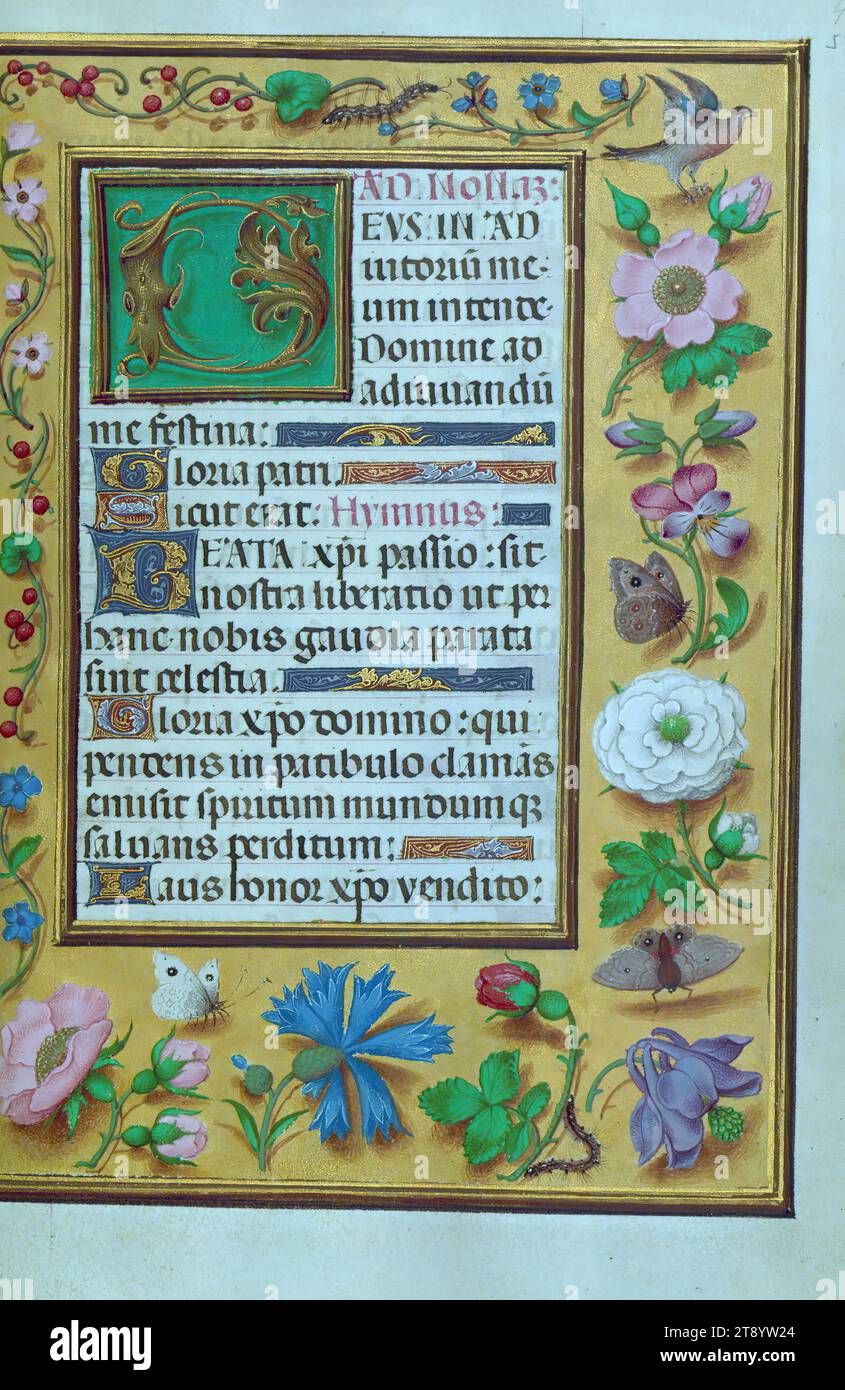 AD NONAꝫ:
DEVS IN AD
iutoriū me-
um intende.
Domine ad
adiuuandū
me festina:
Gloria patri.
Sicut erat: Hymnus:
BEATA xp̄i passio: sit
nostra liberatio ut per
hanc nobis gaudia parata
sint celestia.
Gloria xp̄o domino: qui
pendens in patibulo clamās
emisit spiritum mundumqꝫ
saluans perditum:
Laus honor xp̄o vendito:
a
alamy
Image ID: 2T8YW24
www.alamy.com